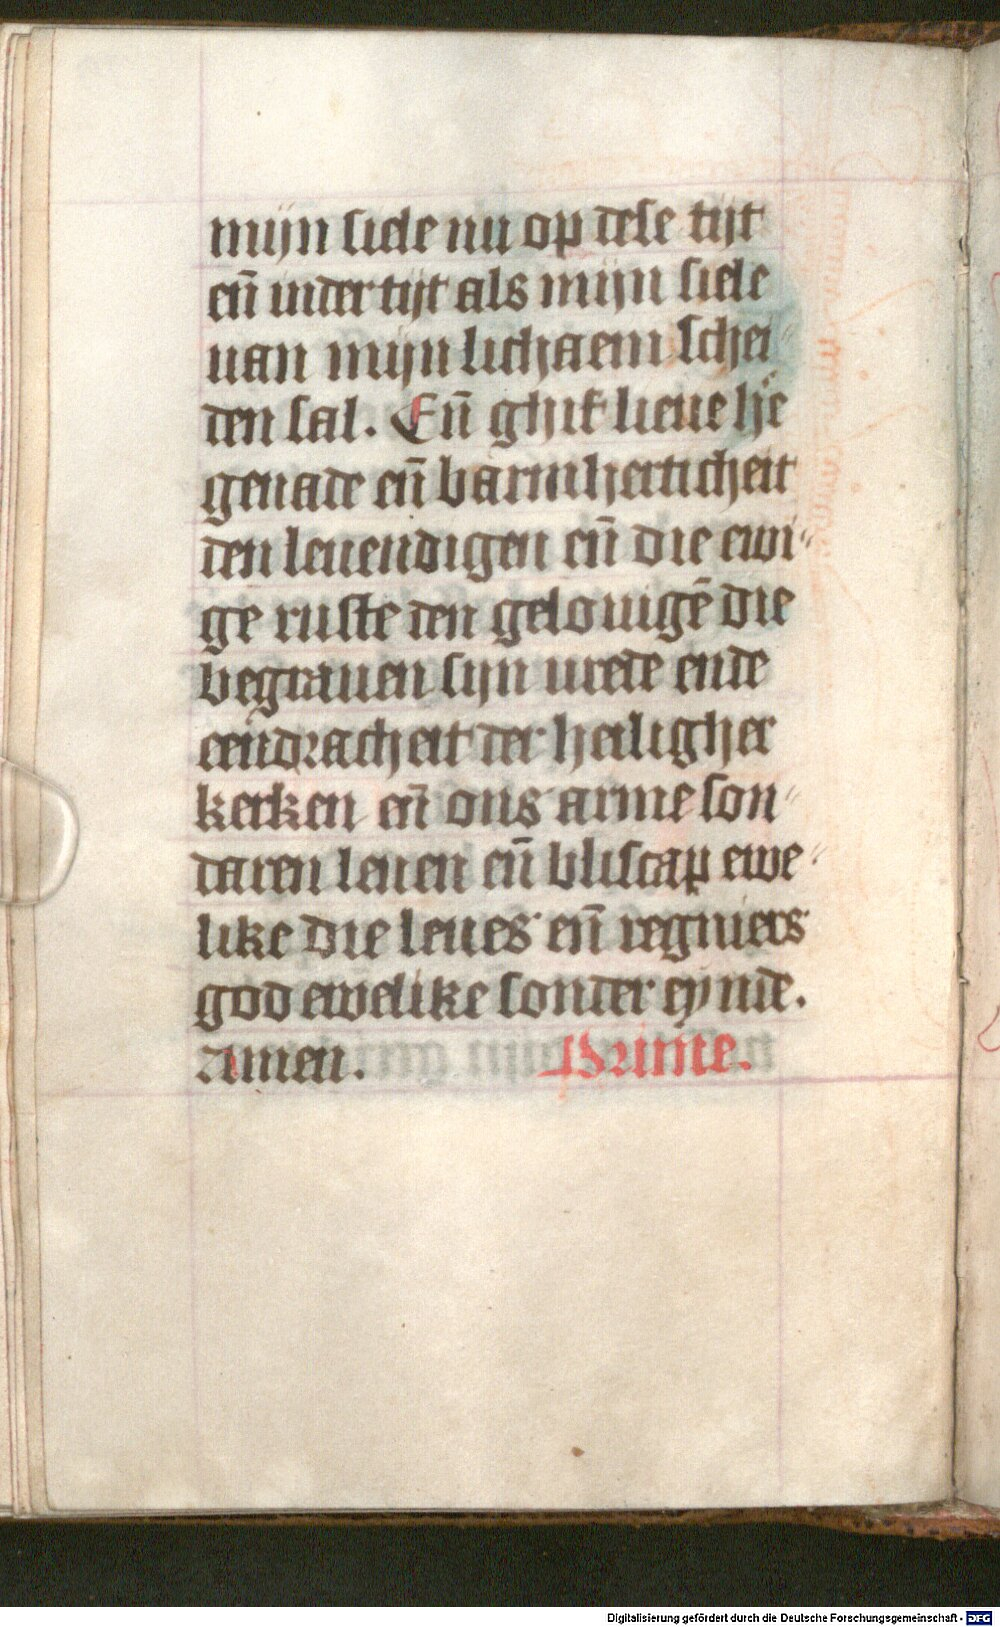 mijn siele nu op dese tijt
eñ inder tijt als mijn siele
uan mijn lichaem schei
den sal. Eñ ghif lieue hˀe
genade eñ barmherticheit
den leuendigen eñ die ewi-
ge ruste den gelouigē die
begrauen sijn urede ende
eendracheit der heiligher
kerken eñ ons arme son-
daren leuen eñ bliscap ewe-
like die leues eñ regniers
god ewelike sonder eynde.
Amen. Prime.
Digitalisierung gefördert durch die Deutsche Forschungsgemeinschaft - DFG